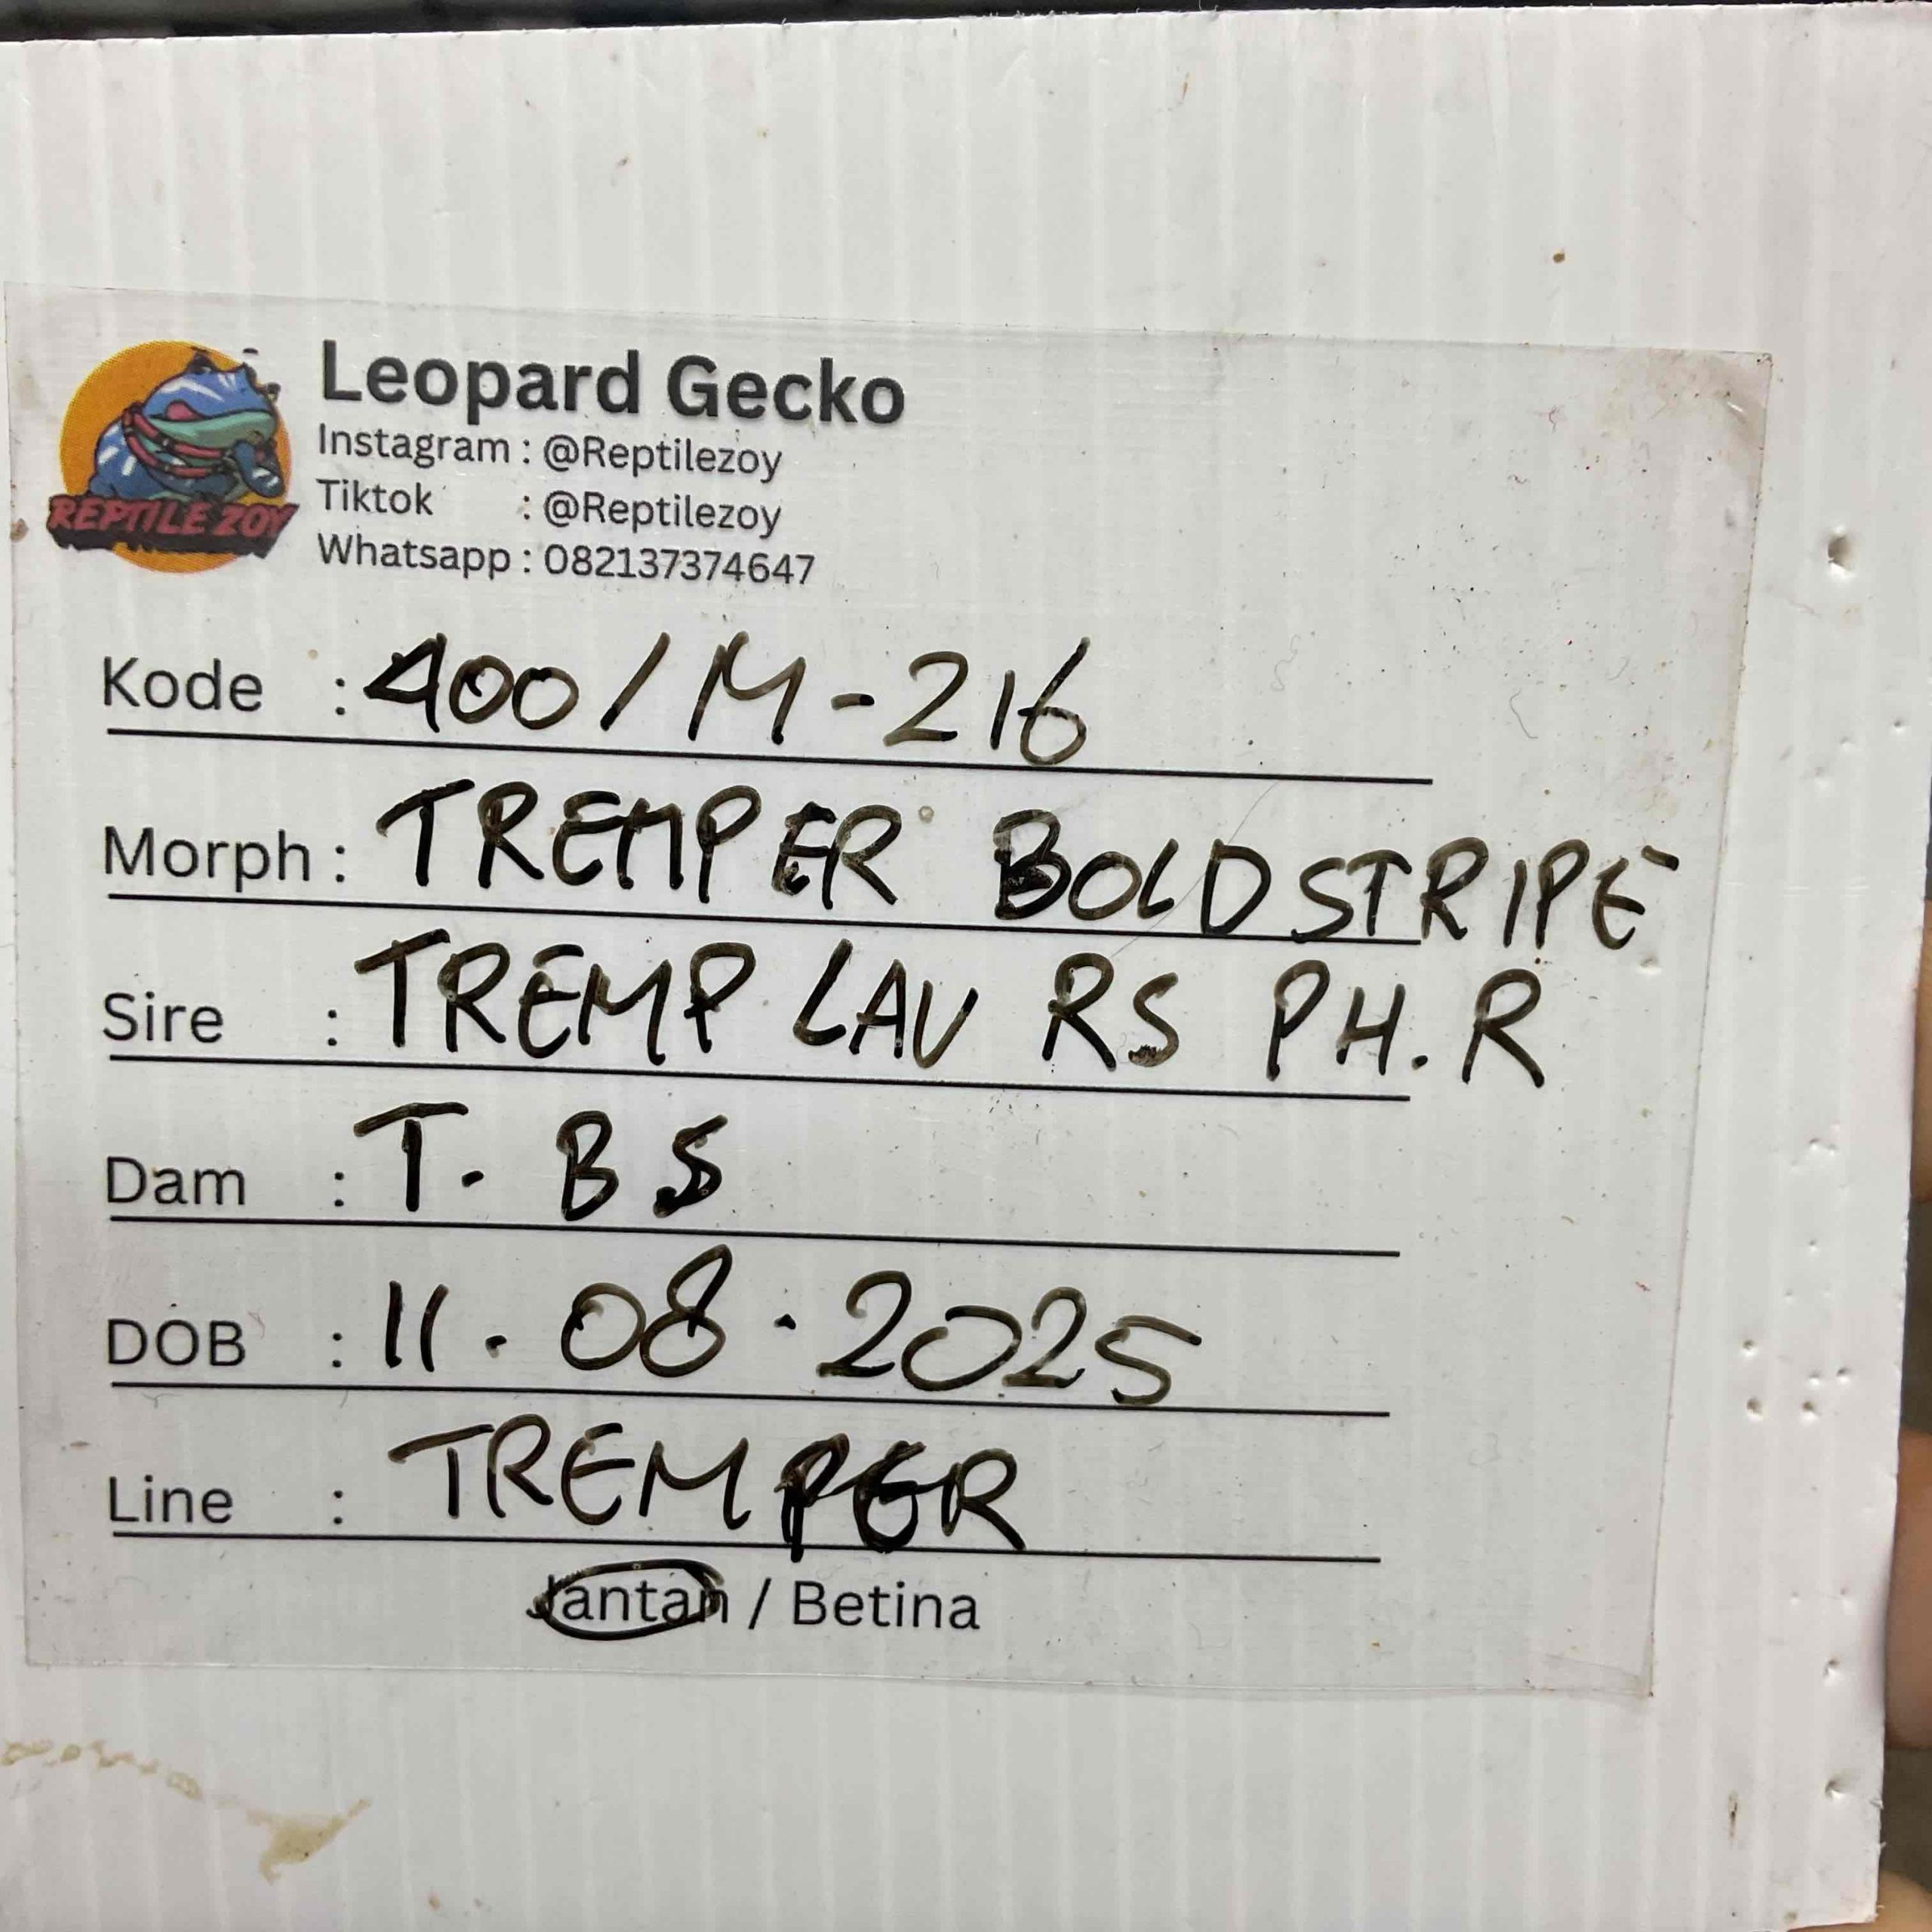 REPTILE ZOY
Leopard Gecko
Instagram : @Reptilezoy
Tiktok : @Reptilezoy
Whatsapp : 082137374647
Kode : 400/M-216
Morph : TREMPER BOLD STRIPE
Sire : TREMP LAV RS PH.R
Dam : T. BS
DOB : 11.08.2025
Line : TREMPER
Jantan / Betina